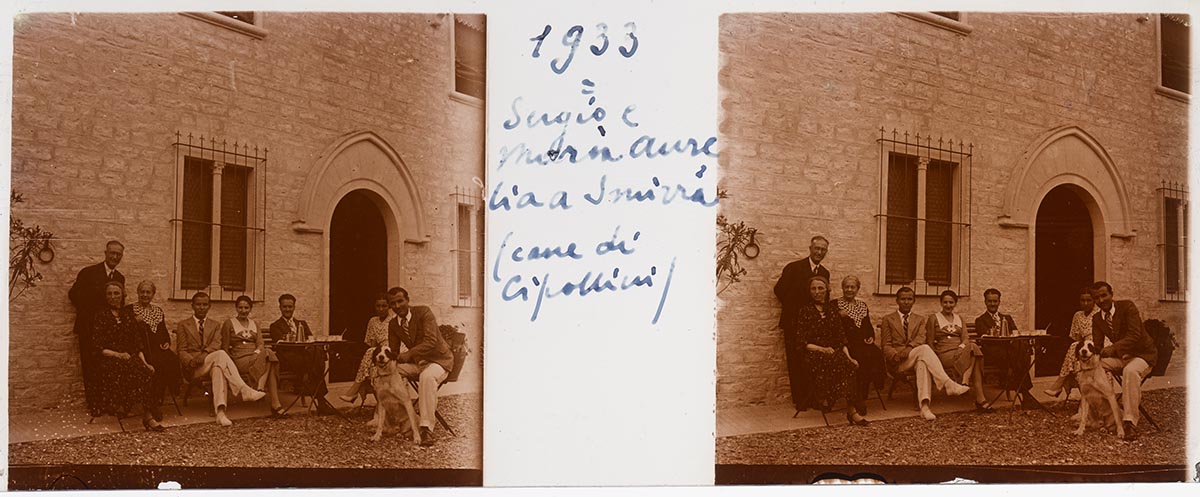 1933
=
Sergio e
Maria Aure
lia a Smirra
(cane di
Cipollini)